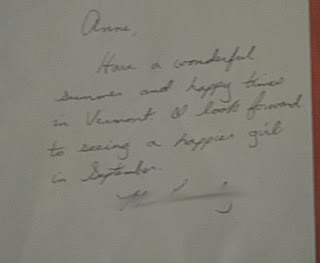 Anne,
Have a wonderful
summer and happy time
in Vermont I look forward
to seeing a happier girl
in September.